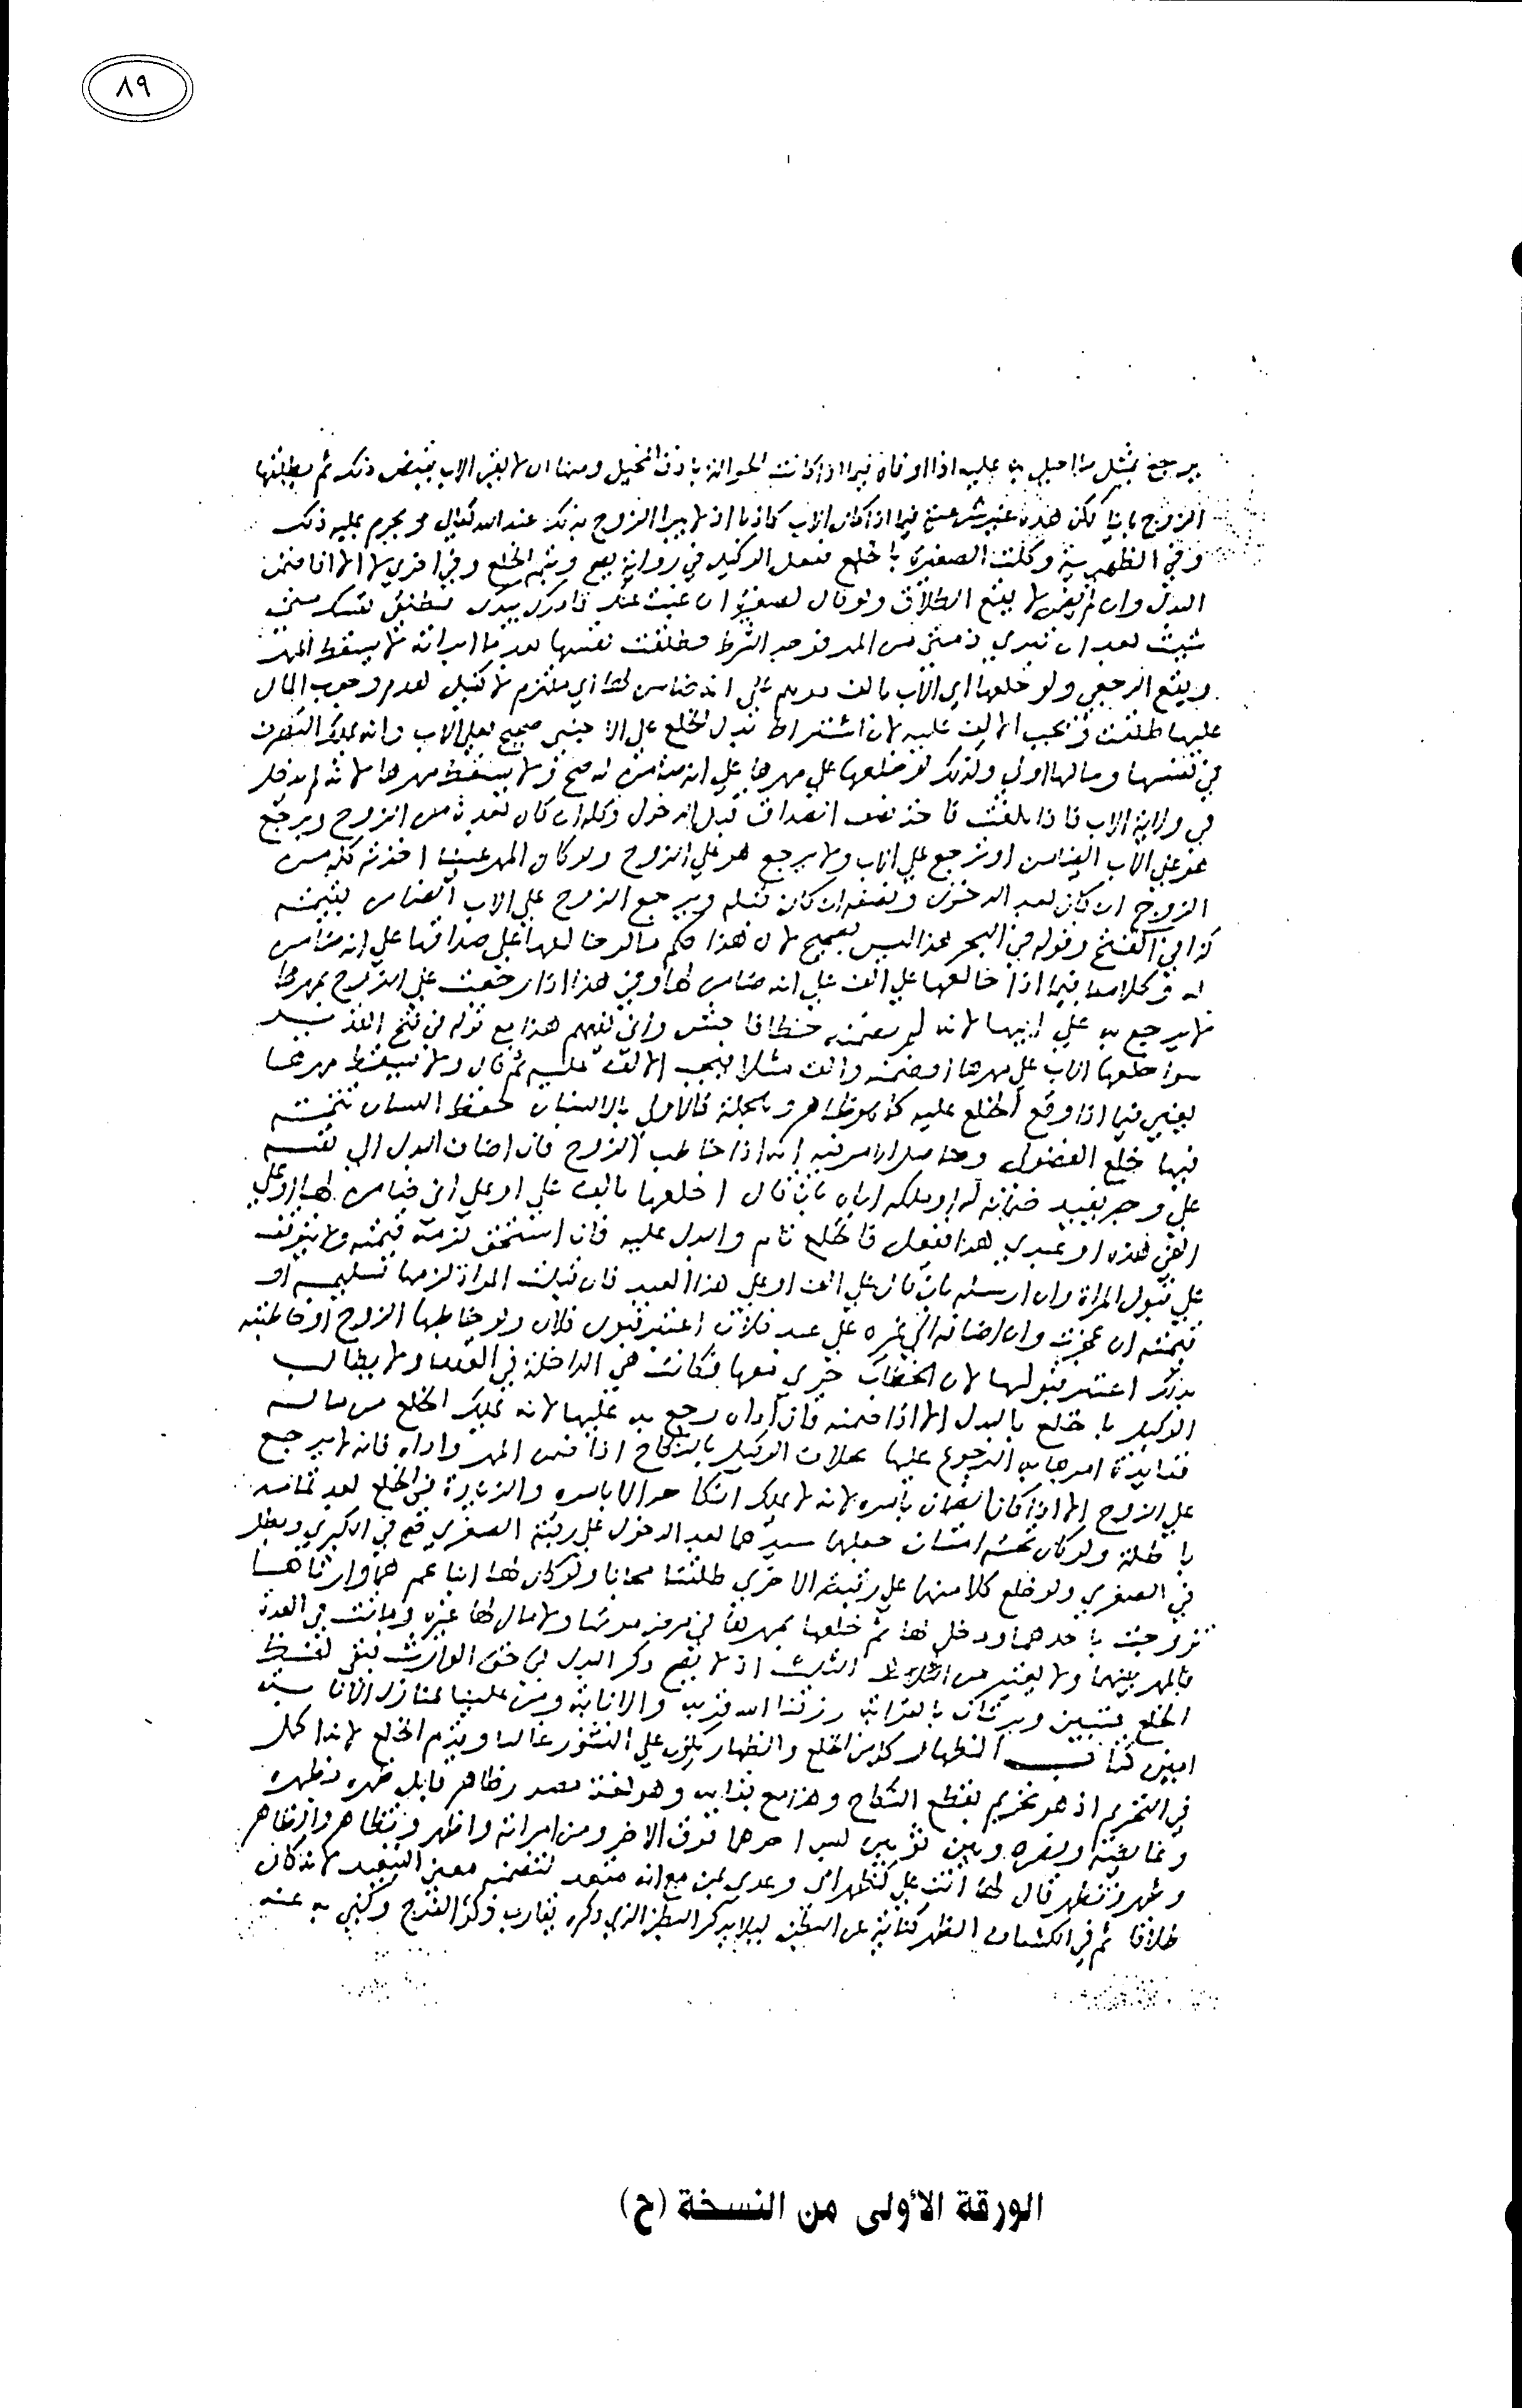 ٨٩
يرجع بمثل ما احيل به عليه اذا اوفاه فيما اذا كانت الحوالة باذن المحيل ومنها ان لا يقر الاب بقبض ذلك ثم يطلقها
الزوج باينا لكن هذه غير فيما اذا كان الاب كاذبا اذ لا يبرا الزوج بذلك عند الله تعالى ويحرم عليه ذلك
وفي الظهيرية وكلت الصغيرة بالخلع ففعل الوكيل في رواية يصح ويتم الخلع وفي اخرى لا الا اذا ضمن
البدل وان لم يضمن لا يقع الطلاق ولو قال لصغيرة ان غبت عنك فامرك بيدك تطلقي نفسك متى
شيت بعد ان تبري ذمتي من المهر فوجد الشرط فطلقت نفسها بعد ما ابراته لا يسقط المهر
ويقع الرجعي ولو خلعها اي الاب بالف درهم على انه ضامن لها اي ملتزم لا كفيل لعدم وجوب المال
عليها طلقت ويجب الالف عليه لان اشتراط بدل الخلع على الاجنبي صحيح فعلى الاب وانه يملك التصرف
في نفسها ومالها اولى ولذلك لو خلعها على مهرها على انه ضامن له صح ولا يسقط مهرها لانه لم يدخل
في ولاية الاب فاذا بلغت تاخذ نصف الصداق قبل الدخول وكله ان كان بعده من الزوج ويرجع
هو على الاب الضامن او ترجع على الاب ولا يرجع هو على الزوج ولو كان المهر عينا اخذته كله من
الزوج ان كان بعد الدخول ونصفه ان كان قبله ويرجع الزوج على الاب الضامن بقيمته
كذا في الفتح وقوله في البحر هذا ليس بصحيح لان هذا حكم ما لو خالعها على صداقها على انه ضامن
له وكلامنا فيما اذا خالعها على الف على انه ضامن لها وفي هذا اذا رجعت على الزوج بمهرها
لا يرجع به على ابيها لانه لم يضمنه خطا فاحش وانى يفهم هذا مع قوله في فتح القدير
سوا خلعها الاب على مهرها وضمنه والف مثلا فيجب الالف عليه ثم قال ولا يسقط مهرها
يعني فيما اذا وقع الخلع عليه كما هو ظاهر وبالجملة فالاولى بالانسان حفظ اللسان تتمة
فيها خلع الفضولي وحاصل الامر فيه انه اذا خاطب الزوج فان اضاف البدل الى نفسه
على وجه يفيد ضمانه له او ملكه اياه بان قال اخلعها بالف علي او على اني ضامن لها او على
الفي هذه او عبدي هذا ففعل فالخلع تام والبدل عليه فان استحق لزمه قيمته ولا يتوقف
على قبول المراة وان ارسله بان قال على الف او على هذا العبد فان قبلت المراة لزمها تسليمه او
قيمته ان عجزت وان اضافه الى غيره على عبد فلان اعتبر قبول فلان ولو خاطبها الزوج او خاطبته
بذلك اعتبر قبولها لان الخطاب جرى معها فكانت هي الداخلة في العقد ولا يطالب
الوكيل بالخلع بالبدل الا اذا ضمنه فان اداه رجع به عليها لانه يملك الخلع من ماله
ففايدة امرها به الرجوع عليها بخلاف الوكيل بالنكاح اذا ضمن المهر واداه فانه لا يرجع
على الزوج الا اذا كان الضمان بامره لانه لا يملك انكاحه الا بامره والزيادة في الخلع بعد تمامه
باطلة ولو كان تحته امتان خلعها سيدهما بعد الدخول على رقبة الصغرى صح في الكبرى وبطل
في الصغرى ولو خلع كلا منهما على رقبة الاخرى طلقتا مجانا ولو كان لها ابنا عم هما وارثاها
تزوجت باحدهما ودخل بها ثم خلعها بمهرها في مرض موتها ولا مال لها غيره وماتت في العدة
فالمهر بينهما ولا يعتبر من الثلث اذ لا يصح ذكر البدل في حق الوارث بقي لفظ
الخلع فتبين ويرثان بالقرابة رزقنا الله قربه والانابة ومن علينا بمنازل الانابة
امين كتاب الظهار كل من الخلع والظهار يكون على النشوز غالبا وقدم الخلع لانه اكمل
في التحريم اذ هو تحريم بقطع النكاح وهذا مع بقايه وهو لغة مصدر ظاهر قابل ظهره بظهره
وغايظه ونصره وبين ثوبين لبس احدهما فوق الاخر ومن امراته واظهر وتظاهر واظاهر
وظهر وتظهر قال لها انت علي كظهر امي وعدي بمن مع انه متعد لتضمنه معنى التبعيد لانه كان
طلاقا ثم في الكشاف الظهر كناية عن البطن ليلا يذكر البطن الذي ذكره يقارب ذكر الفرج وكني به عنه
الورقة الأولى من النسخة (ح)